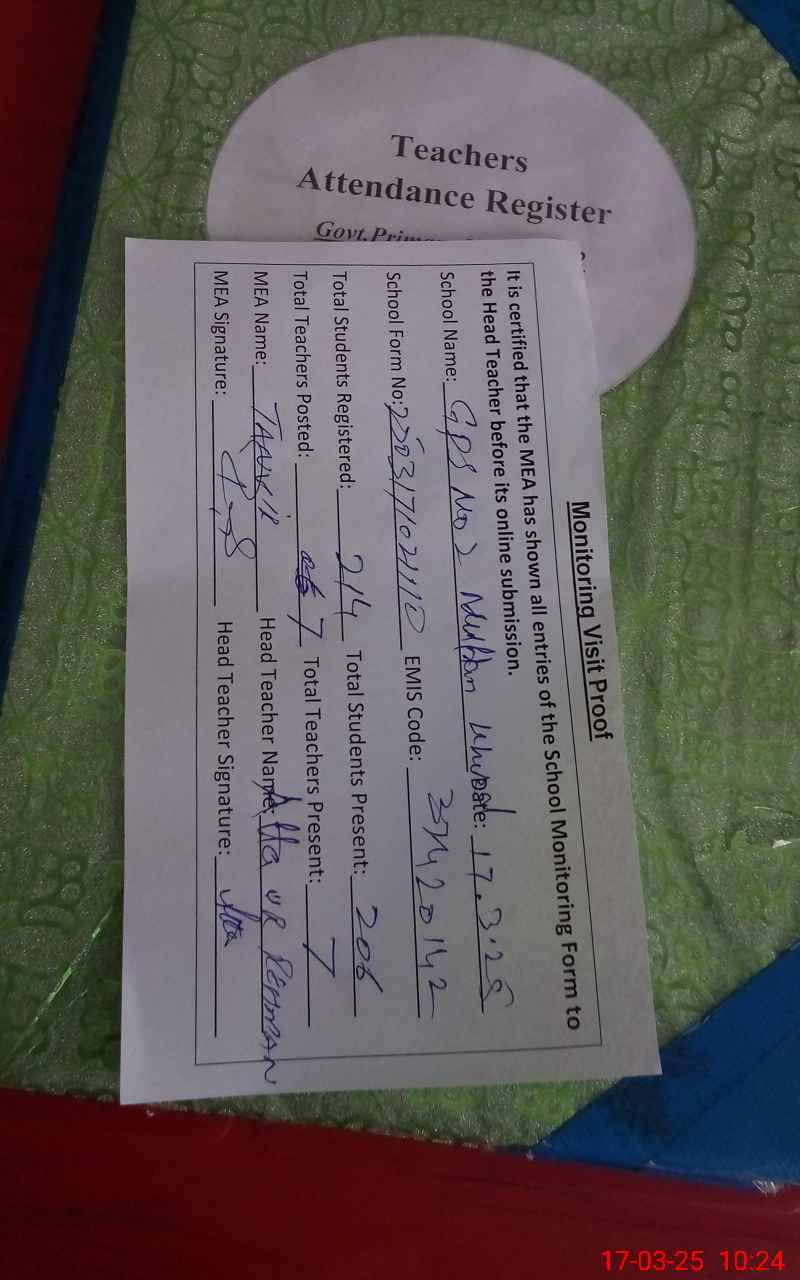 Teachers
Attendance Register
Govt. Prim
Monitoring Visit Proof
It is certified that the MEA has shown all entries of the School Monitoring Form to
the Head Teacher before its online submission.
School Name: GPS No 2 Multan Khurd Date: 17.3.25
School Form No: EMIS Code: 37420142
Total Students Registered: 214 Total Students Present: 206
Total Teachers Posted: 7 Total Teachers Present: 7
MEA Name: TANVIR Head Teacher Name: Atta UR REHMAN
MEA Signature: Head Teacher Signature: Atta
17-03-25 10:24